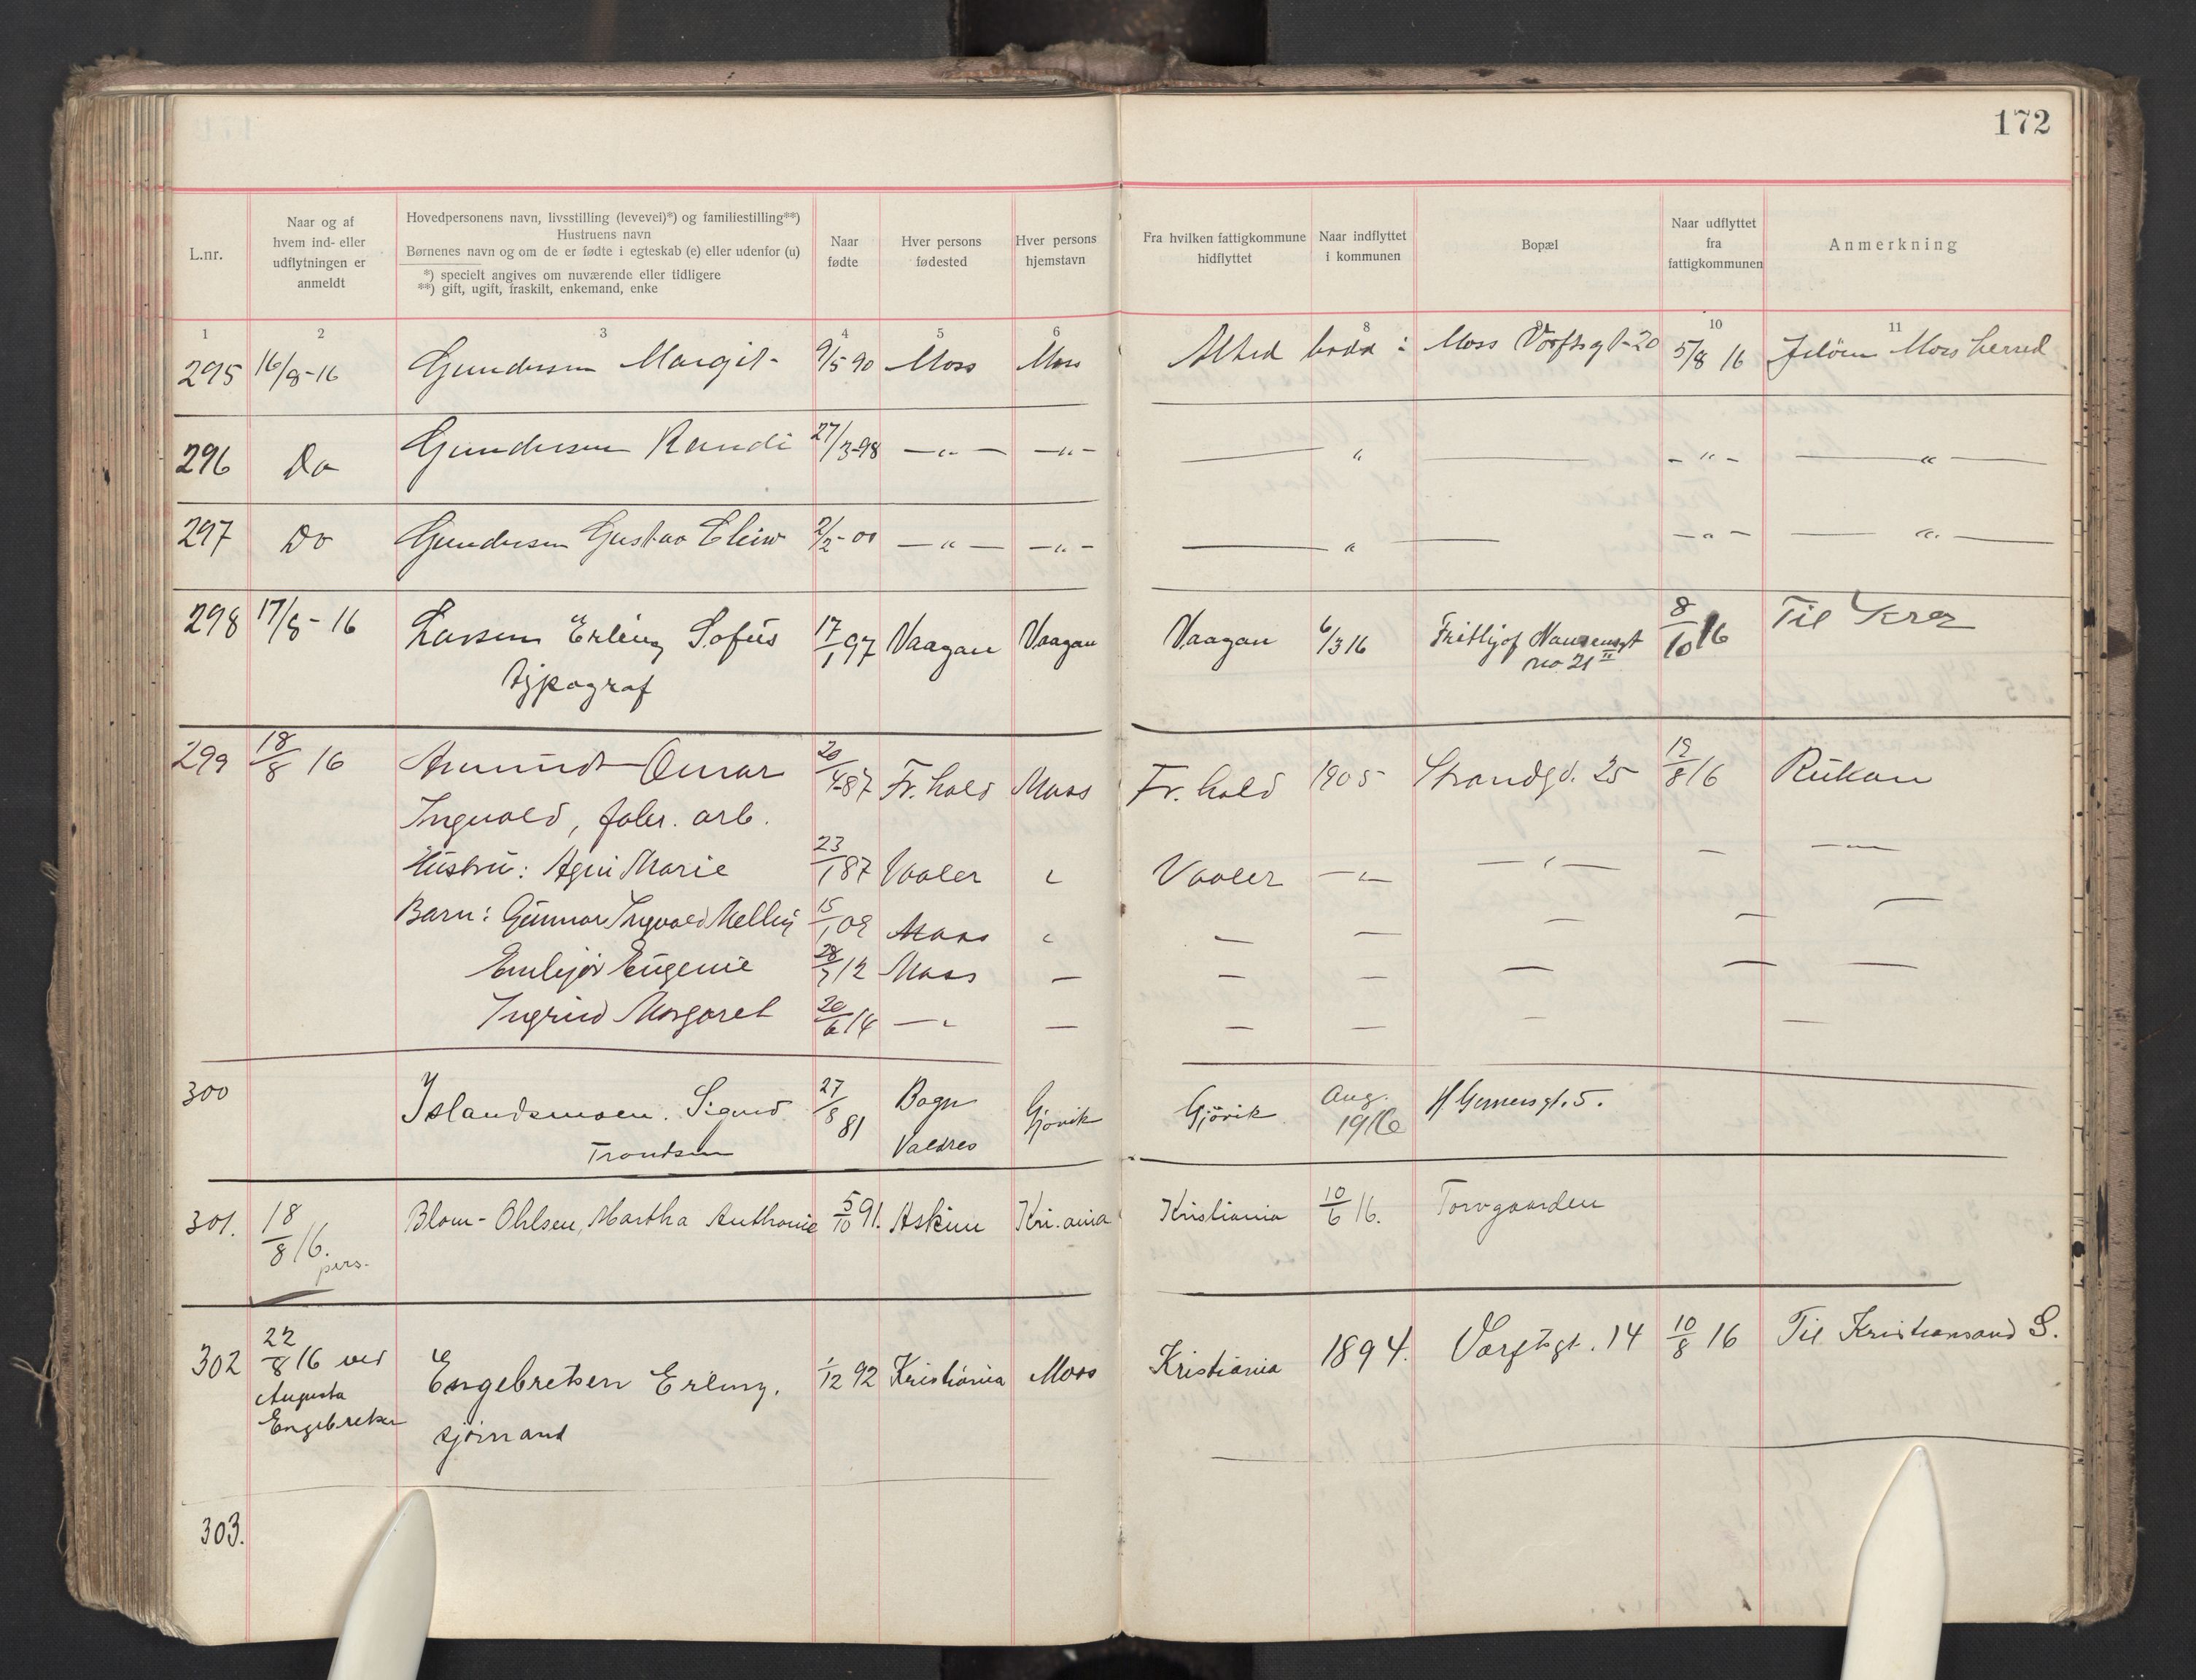 172
L.nr.
Naar og af hvem ind- eller udflytningen er anmeldt
Hovedpersonens navn, livsstilling (levevei)*) og familiestilling**)
Hustruens navn
Børnenes navn og om de er fødte i egteskab (e) eller udenfor (u)
*) specielt angives om nuværende eller tidligere
**) gift, ugift, fraskilt, enkemand, enke
Naar fødte
Hver persons fødested
Hver persons hjemstavn
Fra hvilken fattigkommune hidflyttet
Naar indflyttet i kommunen
Bopæl
Naar udflyttet fra fattigkommunen
Anmerkning
1 2 3 4 5 6 8 10 11
295 16/8-16 Gundersen Margit 9/5 90 Moss Moss Altid bodd i Moss Værftsgt-20 5/8 16 Jeløen Moss herred
296 Do Gundersen Randi 27/3-98 —„— —„— — „ — -„- — „ —
297 Do Gundersen Gustav 2/2-00 —„— —„— — „ — -„- — „ —
298 17/8-16 Larsen Erling Sofus 17/1 97 Vaagan Vaagan Vaagan 6/3 16 Frithjof Nansensgt 8/10 16 Til Kra
typograf no 21 II
299 18/8 16 Amundt Omar 20/4-87 Fr.hald Moss Fr. hald 1905 Strandgd. 25 19/8 16 Rukan
Ingvald, fabr. arb.
Hustru: Agni Marie 23/1 87 Vaaler „ Vaaler —„— —„— — —„—
Barn: Gunnar Ingvald 15/1 09 Moss „ — — — — —
Eugenie 28/7 12 Moss — — — — — —
Ingrid Margaret 20/6 14 —„ — — — — —
300 Islandsmoen. Sigurd 27/8 81 Bagn Gjøvik Gjövik Aug. 1916 H Gernersgt. 5.
Trondsen Valdres
301. 18/8 16. Blom-Ohlsen, Martha Anthonie 5/10 91. Askim Kri.ania Kristiania 10/6 16. Torvgaarden
pers.
302 22/8 16 ved Engebretsen Erling. 1/12 92 Kristiania Moss Kristiania 1894. Værftsgt. 14 10/8 16 Til Kristiansand S.
Augusta
Engebretsen sjømand
303.